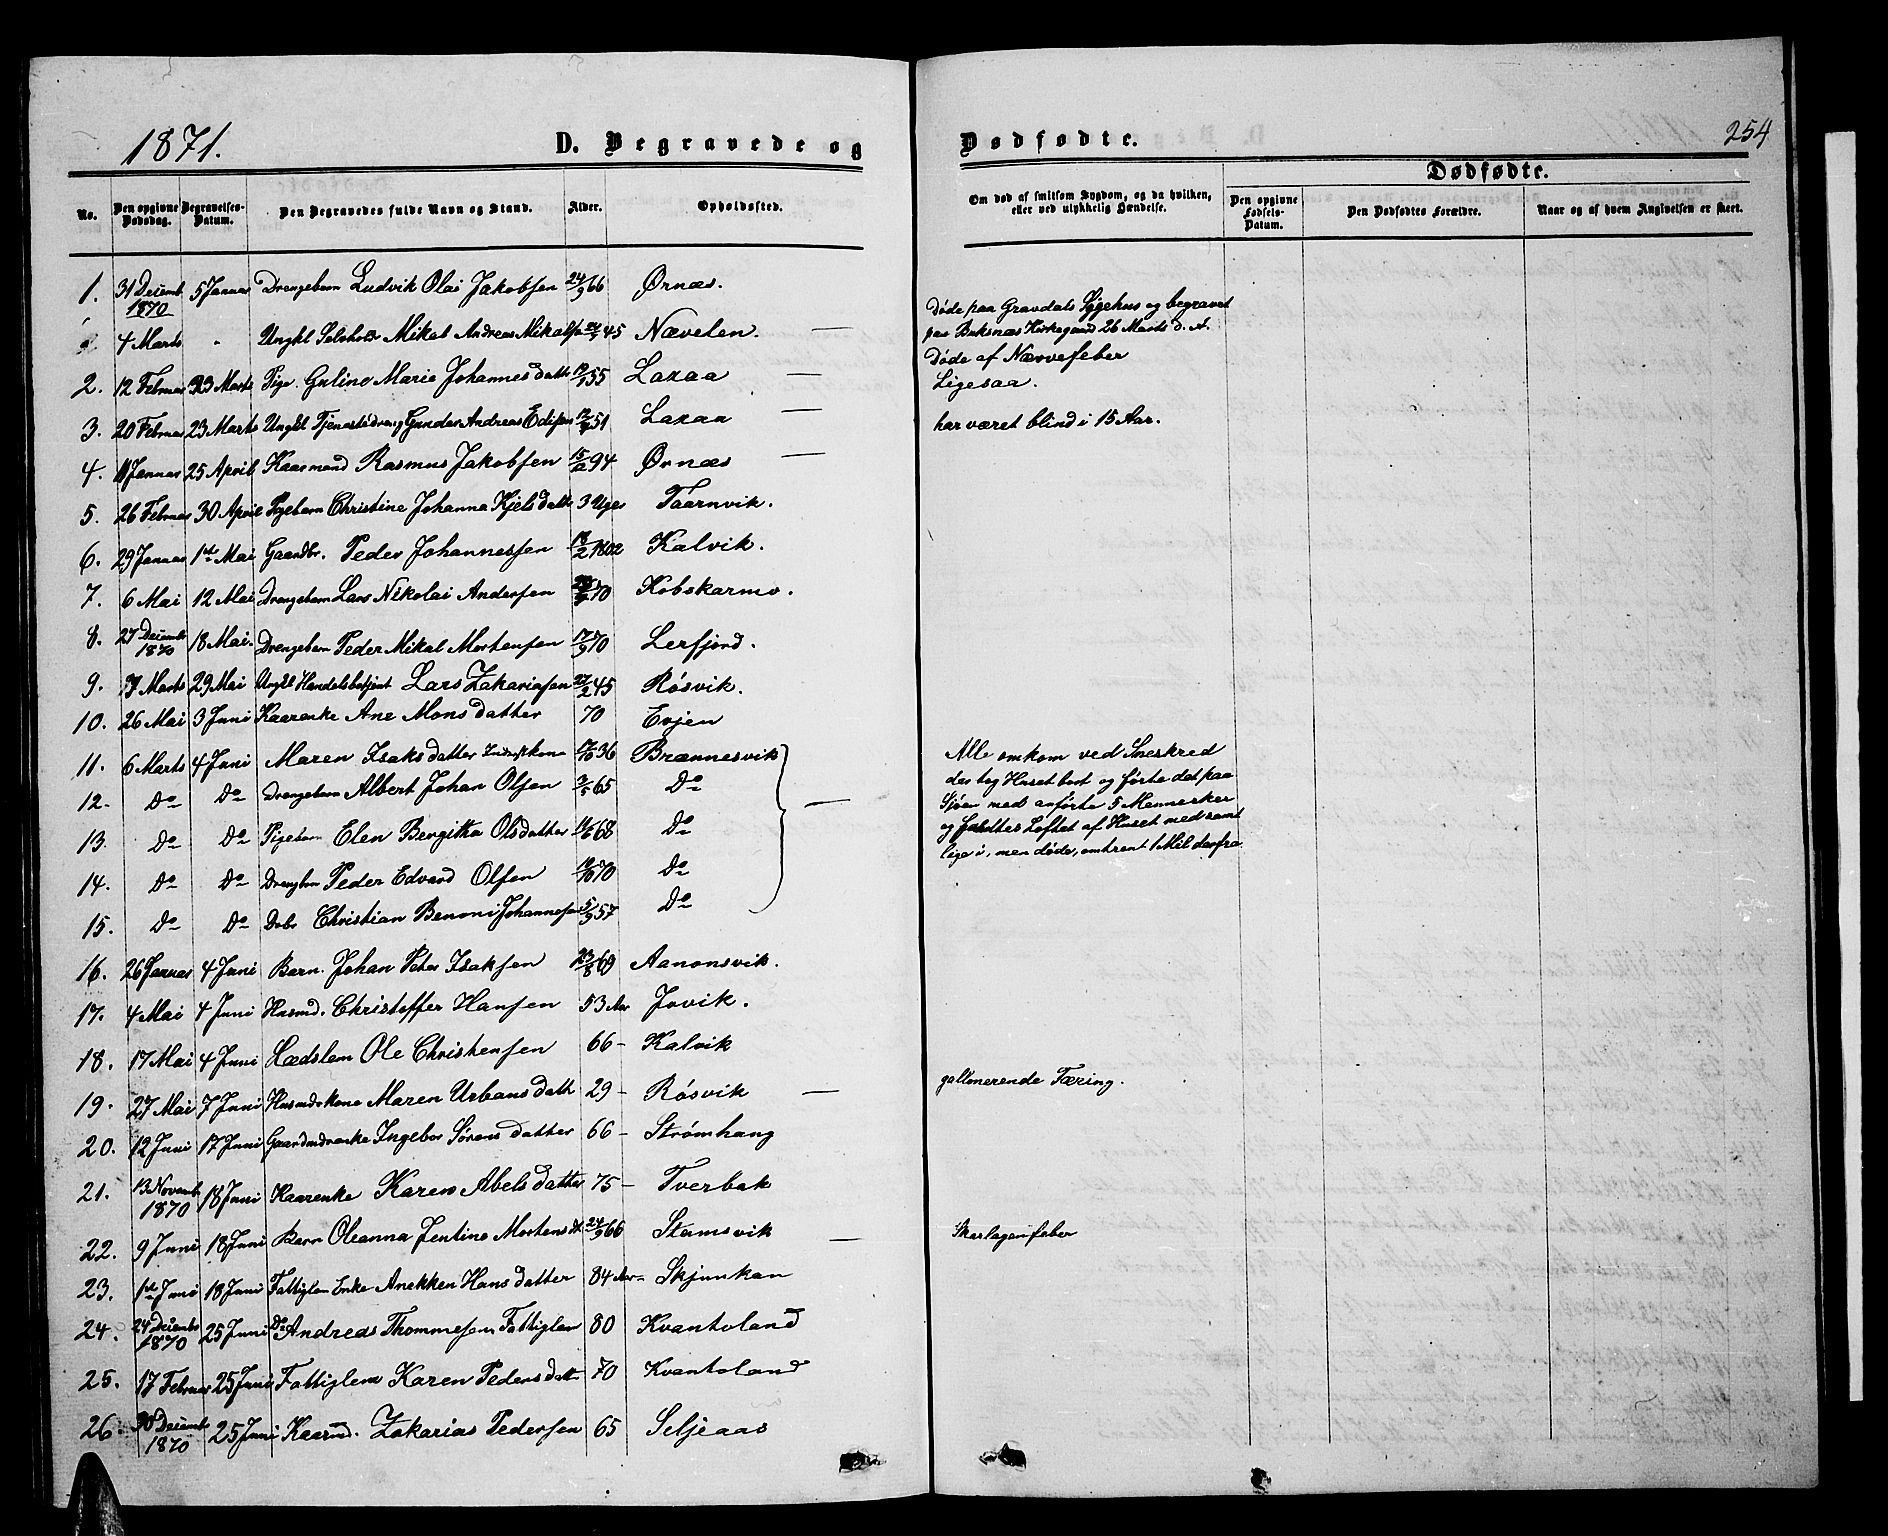 1871.
D. Begravede og
Dødfødte.
254
Dødfødte.
No.
Den opgivne Dødsdag.
Begravelses-Datum.
Den Begravedes fulde Navn og Stand.
Alder.
Opholdssted.
Om død af smitsom Sygdom, og da hvilken, eller ved ulykkelig Hændelse.
Den opgivne Fødsels-Datum.
Den Dødfødtes Forældre.
Naar og af hvem Angivelsen er skeet.
1. 31 Decemb. 1870 5 Januar Drengebarn Ludvik Olai Jakobsen 24/9 66 Ørnæs.
4 Marts " Ungkl Mikal Andreas Mikalsen 45 Nævelen. —
Døde paa Gravdals Sygehus og begravet
paa Buksnæs Kirkegaard 26 Marts d. A.
Døde af Nærvefeber
2. 12 Februar 23 Marts Pige. Guline Marie Johannesdatte 55 Laxaa —
Ligesaa.
3. 20 Februar 23 Marts Ungkl Tjenestedreng Gunder Andreas Edisen 51 Laxaa —
har været blind i 15 Aar.
4. 11 Januar 25 April Kaarmand Rasmus Jakobsen 94 Ørnæs —
5. 26 Februar 30 April Pigebarn Christine Johanna Kjelsdatte 3 Uger Taarnvik.
6. 29 Januar 1ste Mai Gaardbr. Peder Johannessen 18/2 1802 Kalvik.
7. 6 Mai 12 Mai Drengebarn Lars Nikolai Andersen 70 Kobskarmo.
8. 27 Decemb 1870 18 Mai. Drengebarn Peder Mikal Mortensen 17/9 70 Lerfjord.
9. Marts 29 Mai Ungkl Handelsbetjent Lars Zakariasen 27/2 45 Røsvik.
10. 26 Mai 3 Juni Kaarenke Ane Monsdatter 70 Evjen
11. 6 Marts 4 Juni Maren Isaksdatter kone 36 Brænnesvik
12. Do Do Drengebarn Albert Johan Olsen 65 Do
13. Do Do Pigebarn Elen Bergitha Olsdatter 68 Do
14. Do Do Drengebn Peder Edvard Olsen 70 Do
15. Do Do Christian Benoni Johannesen 5/9 57 Do
Alle omkom ved Sneskred
der tog Huset bort og førte det paa
Sjøen med anførte 5 Mennesker
og Loftet af Huset med samt
lige i, men døde, omtrent 1 Mil derfra
16. 26 Januar 4 Juni Barn. Johan Peter Isaksen 23/8 69 Aanonsvik.
17. 4 Mai 4 Juni Husmd. Christoffer Hansen 53 Aar Jovik.
18. 17 Mai 4 Juni Lædslem Ole Christensen 66 – Kalvik
19. 27 Mai 7 Juni Husmdskone Maren Urbansdatt 29 – Røsvik —
gallonerende Tæring.
20. 12 Juni 17 Juni Gaardmdsenke Ingebor Sørensdatter 66 – Strømhang
21. 13 Novemb 1870 18 Juni Kaarenke Karen Abelsdatter 75 – Tverbak
22. 9 Juni 18 Juni Barn Oleanna Jentine Mortensdt 24/9 66 Stamsvik —
Skarlagensfeber
23. 1ste Juni 18 Juni Fattiglem Enke Anekken Hansdatter 84 Aar – Skjunkan
24. 24 Decemb 1870 25 Juni Do Andreas Thommesen Fattiglem 80 Kvantoland
25. 17 Februar 25 Juni Fattiglem Karen Pedersdatt 70 Kvantoland
26. 30 Decemb 1870 25 Juni Kaarmd. Zakarias Pedersen 65 Seljeaas